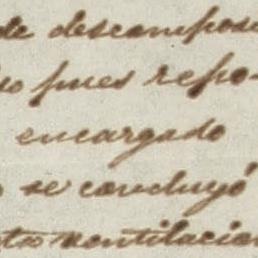 de descompos
so pues repo-
encargado
se concluyó
ventilacion